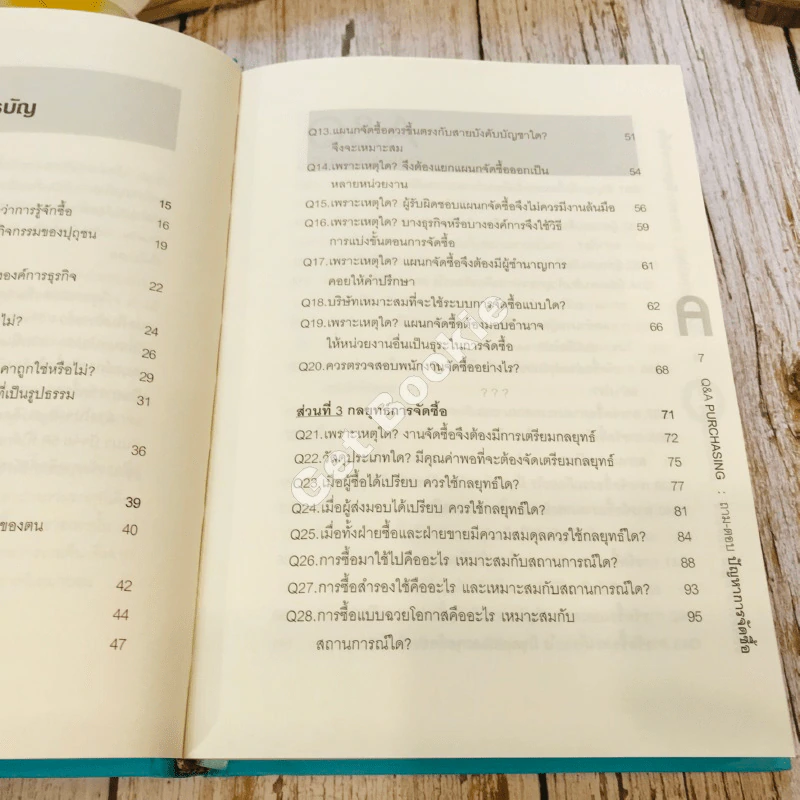 รบัญ
15
ว่าการรู้จักซื้อ 16
กิจกรรมของปุถุชน 19
องค์การธุรกิจ 22
ไม่? 24
26
คาถูกใช่หรือไม่? 29
ที่เป็นรูปธรรม 31
36
39
ของตน 40
42
44
47
Q13.แผนกจัดซื้อควรขึ้นตรงกับสายบังคับบัญชาใด? 51
จึงจะเหมาะสม
Q14.เพราะเหตุใด? จึงต้องแยกแผนกจัดซื้อออกเป็น 54
หลายหน่วยงาน
Q15.เพราะเหตุใด? ผู้รับผิดชอบแผนกจัดซื้อจึงไม่ควรมีงานล้นมือ 56
Q16.เพราะเหตุใด? บางธุรกิจหรือบางองค์การจึงใช้วิธี 59
การแบ่งขั้นตอนการจัดซื้อ
Q17.เพราะเหตุใด? แผนกจัดซื้อจึงต้องมีผู้ชำนาญการ 61
คอยให้คำปรึกษา
Q18.บริษัทเหมาะสมที่จะใช้ระบบการจัดซื้อแบบใด? 62
Q19.เพราะเหตุใด? แผนกจัดซื้อต้องมอบอำนาจ 66
ให้หน่วยงานอื่นเป็นธุระในการจัดซื้อ
Q20.ควรตรวจสอบพนักงานจัดซื้ออย่างไร? 68
???
ส่วนที่ 3 กลยุทธ์การจัดซื้อ 71
Q21.เพราะเหตุใด? งานจัดซื้อจึงต้องมีการเตรียมกลยุทธ์ 72
Q22.วัสดุประเภทใด? มีคุณค่าพอที่จะต้องจัดเตรียมกลยุทธ์ 75
Q23.เมื่อผู้ซื้อได้เปรียบ ควรใช้กลยุทธ์ใด? 77
Q24.เมื่อผู้ส่งมอบได้เปรียบ ควรใช้กลยุทธ์ใด? 81
Q25.เมื่อทั้งฝ่ายซื้อและฝ่ายขายมีความสมดุลควรใช้กลยุทธ์ใด? 84
Q26.การซื้อมาใช้ไปคืออะไร เหมาะสมกับสถานการณ์ใด? 88
Q27.การซื้อสำรองใช้คืออะไร และเหมาะสมกับสถานการณ์ใด? 93
Q28.การซื้อแบบฉวยโอกาสคืออะไร เหมาะสมกับ 95
สถานการณ์ใด?
A
7
Q&A PURCHASING : ถาม-ตอบ ปัญหาการจัดซื้อ
Get Bookie